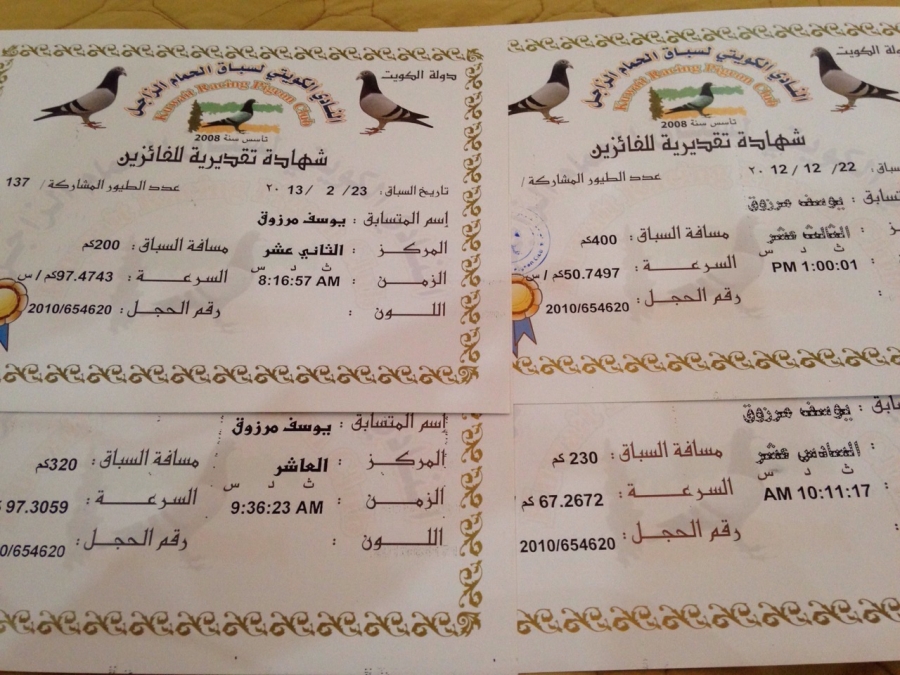 دولة الكويت
النادي الكويتي لسباق الحمام الزاجل
Kuwait Racing Pigeon Club
تأسس سنة 2008
شهادة تقديرية للفائزين
تاريخ السباق : 23/ 2 /٢٠١٣ عدد الطيور المشاركة / 137
إسم المتسابق : يوسف مرزوق
المركز : الثاني عشر مسافة السباق : 200كم
ث د س
الزمن : 8:16:57 AM السرعة : 97.4743كم / س
اللون : رقم الحجل : 2010/654620
دولة الكويت
النادي الكويتي لسباق الحمام الزاجل
Kuwait Racing Pigeon Club
تأسس سنة 2008
شهادة تقديرية للفائزين
22/ 12 / ٢٠١٢ عدد الطيور المشاركة /
يوسف مرزوق
الثالث عشر مسافة السباق : 400كم
ث د س
: PM 1:00:01 السرعة : 50.7497كم / س
: رقم الحجل : 2010/654620
إسم المتسابق : يوسف مرزوق
المركز : العاشر مسافة السباق : 320كم
ث د س
الزمن : 9:36:23 AM السرعة : 97.3059
اللون : رقم الحجل : 0/654620
يوسف مرزوق
: السادس عشر مسافة السباق : 230 كم
ث د س
: AM 10:11:17 السرعة : 67.2672 كم
: رقم الحجل : 2010/654620